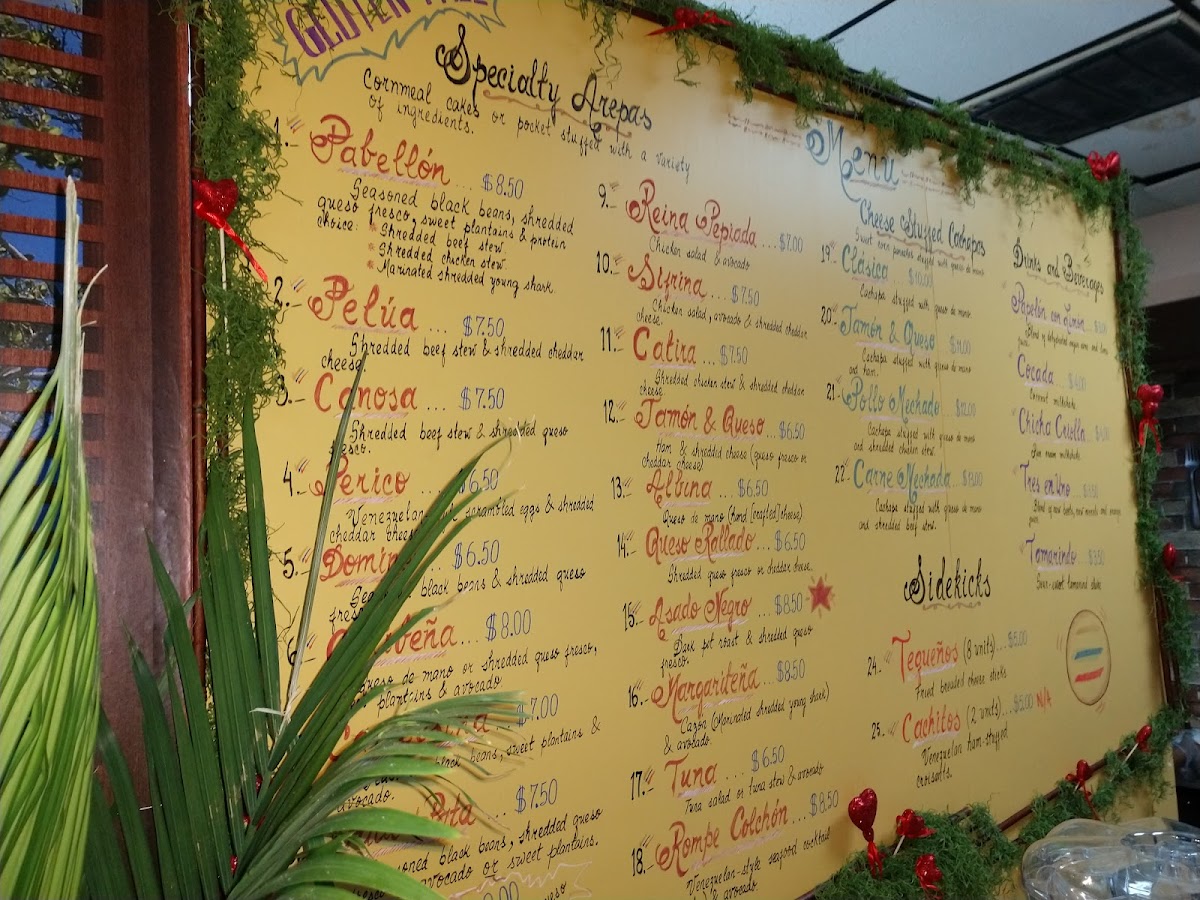 GLUTEN FREE
Specialty Arepas
Cornmeal cakes or pocket stuffed with a variety
of ingredients.
1.- Pabellón ... $8.50
Seasoned black beans, shredded
queso fresco, sweet plantains & protein
choice: * Shredded beef stew.
* Shredded chicken stew.
* Marinated shredded young shark.
2.- Pelúa .... $7.50
Shredded beef stew & shredded cheddar
cheese
3.- Canosa .... $7.50
Shredded beef stew & shredded queso
fresco.
4.- Perico ... $6.50
Venezuelan scrambled eggs & shredded
cheddar cheese
5.- Domin $6.50
black beans & shredded queso
fresco
6.- eña ... $8.00
queso de mano or shredded queso fresco,
plantains & avocado
$7.00
black beans, sweet plantains &
avocado.
Rita ... $7.50
black beans, shredded queso
avocado or sweet plantains.
queso
9.- Reina Pepiada ... $7.00
Chicken salad & avocado
10.- Syrina ... $7.50
Chicken salad, avocado & shredded cheddar
cheese.
11.- Catira ... $7.50
Shredded chicken stew & shredded cheddar
cheese.
12.- Jamón & Queso ... $6.50
Ham & shredded cheese (queso fresco or
cheddar cheese)
13.- Albina ... $6.50
Queso de mano (hand crafted cheese)
14.- Queso Rallado ... $6.50
Shredded queso fresco or cheddar cheese.
15.- Asado Negro ... $8.50
Dark pot roast & shredded queso
fresco.
16.- Margariteña ... $8.50
Cazón (Marinated shredded young shark)
& avocado.
17.- Tuna ... $6.50
Tuna salad or tuna stew & avocado
18.- Rompe Colchón ... $8.50
Venezuelan-style seafood cocktail
& avocado.
Menu
Cheese Stuffed Cachapas
Sweet corn pancakes stuffed with queso de mano
19.- Clásica ... $10.00
Cachapa stuffed with queso de mano
20.- Jamón & Queso ... $11.00
Cachapa stuffed with queso de mano
and ham.
21.- Pollo Mechado ... $12.00
Cachapa stuffed with queso de mano
and shredded chicken stew.
22.- Carne Mechada ... $13.00
Cachapa stuffed with queso de mano
and shredded beef stew.
Sidekicks
24.- Tequeños (8 units)... $5.00
Fried breaded cheese sticks
25.- Cachitos (2 units)... $5.00 N/A
Venezuelan ham-stuffed
croissants.
Drinks and Beverages
Papelón con Limón
Cocada ... $4.00
Coconut milkshake.
Chicha Criolla
Tres en Uno
Tamarindo ... $3.50